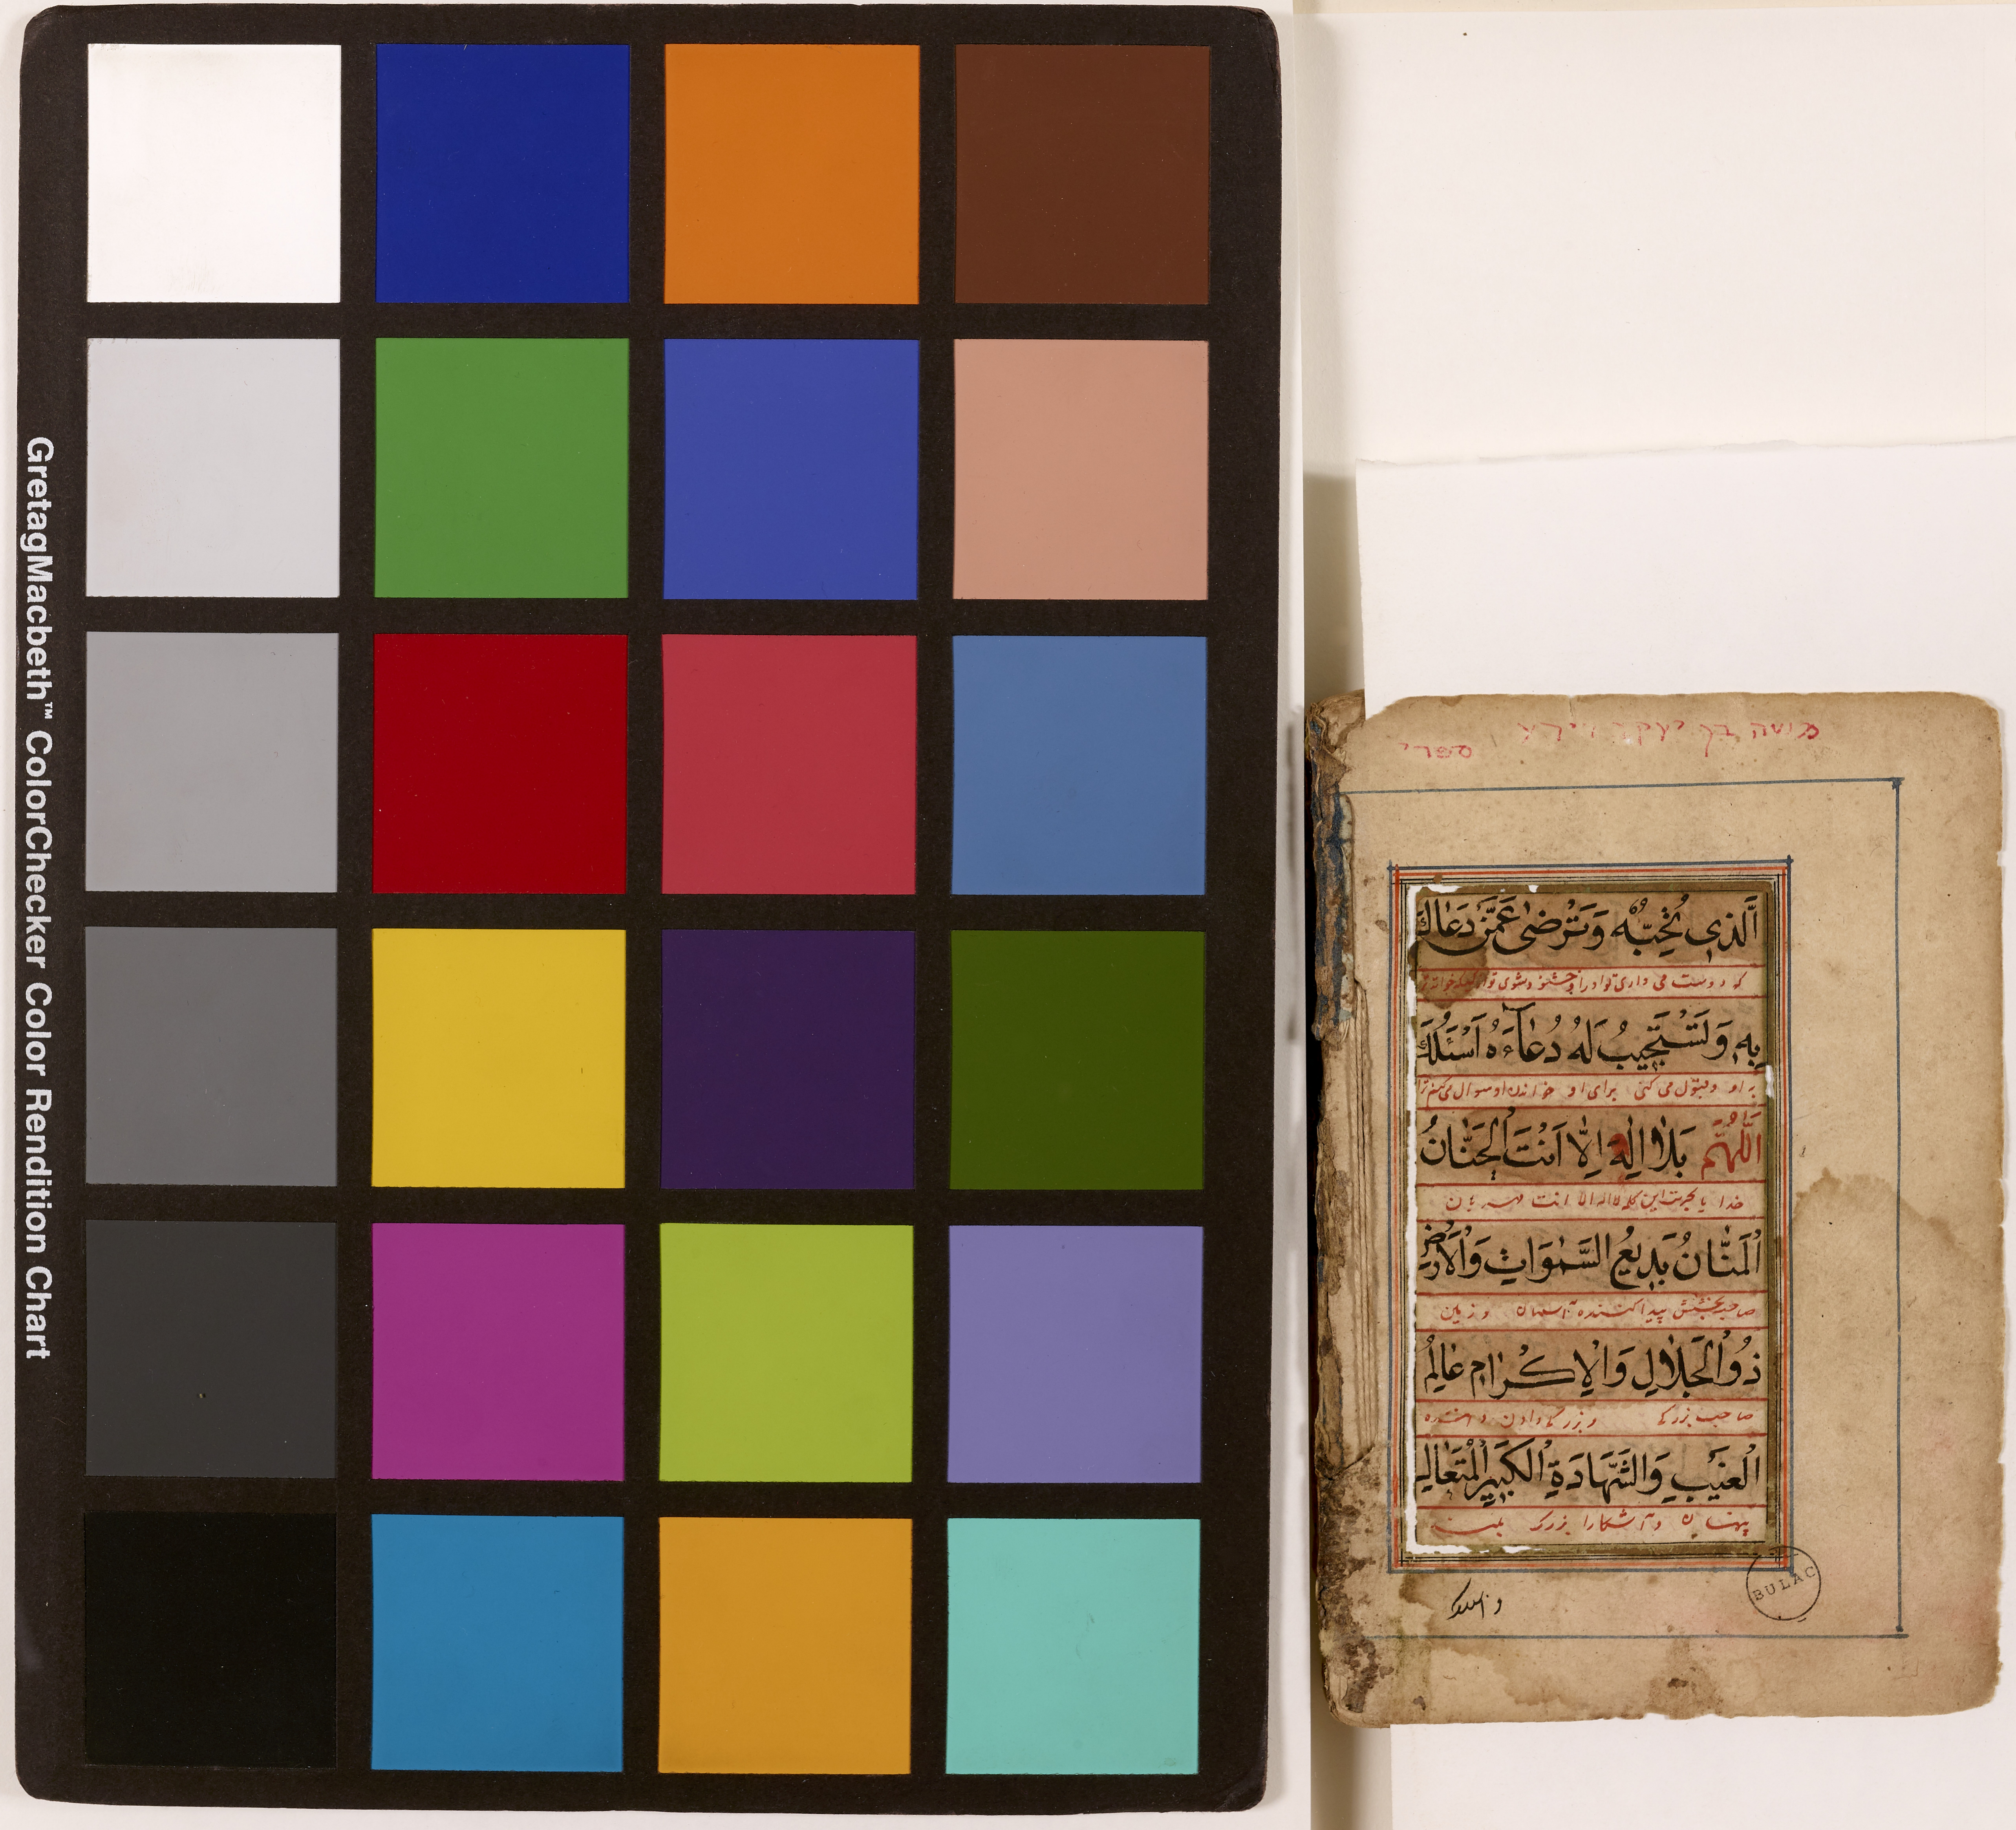 GretagMacbeth™ ColorChecker Color Rendition Chart
משה בן יעקב
ספרי
اَلَّذى تُحِبُّهُ وَتَرْضىٰ عَمَّنْ دَعَاكَ
که دوست می داری تو او را و خشنود شوی تو
بِهِ وَتَسْتَجيبُ لَهُ دُعَآءَهُ اَسْئَلُكَ
به او و قبول می کنی برای او خواندن او سوال می کنم ترا
اَللّٰهُمَّ بِلٰا اِلٰهَ اِلّٰا اَنْتَ الْحَنّٰانُ
خدا یا بحرمت این کلمه لا اله الا انت مهربان
اَلْمَنّٰانُ بَديعُ السَّمٰوَاتِ وَالْاَرْضِ
صاحب بخشش پیدا کننده آسمان و زمین
ذُو الْجَلٰالِ وَالْاِكْرٰامِ عٰالِمُ
صاحب بزرگی و بزرگی دادن داننده
الْغَيْبِ وَالشَّهٰادَةِ الْكَبيرِ الْمُتَعٰالِ
پنهان و آشکارا بزرگ بلند
BULAC